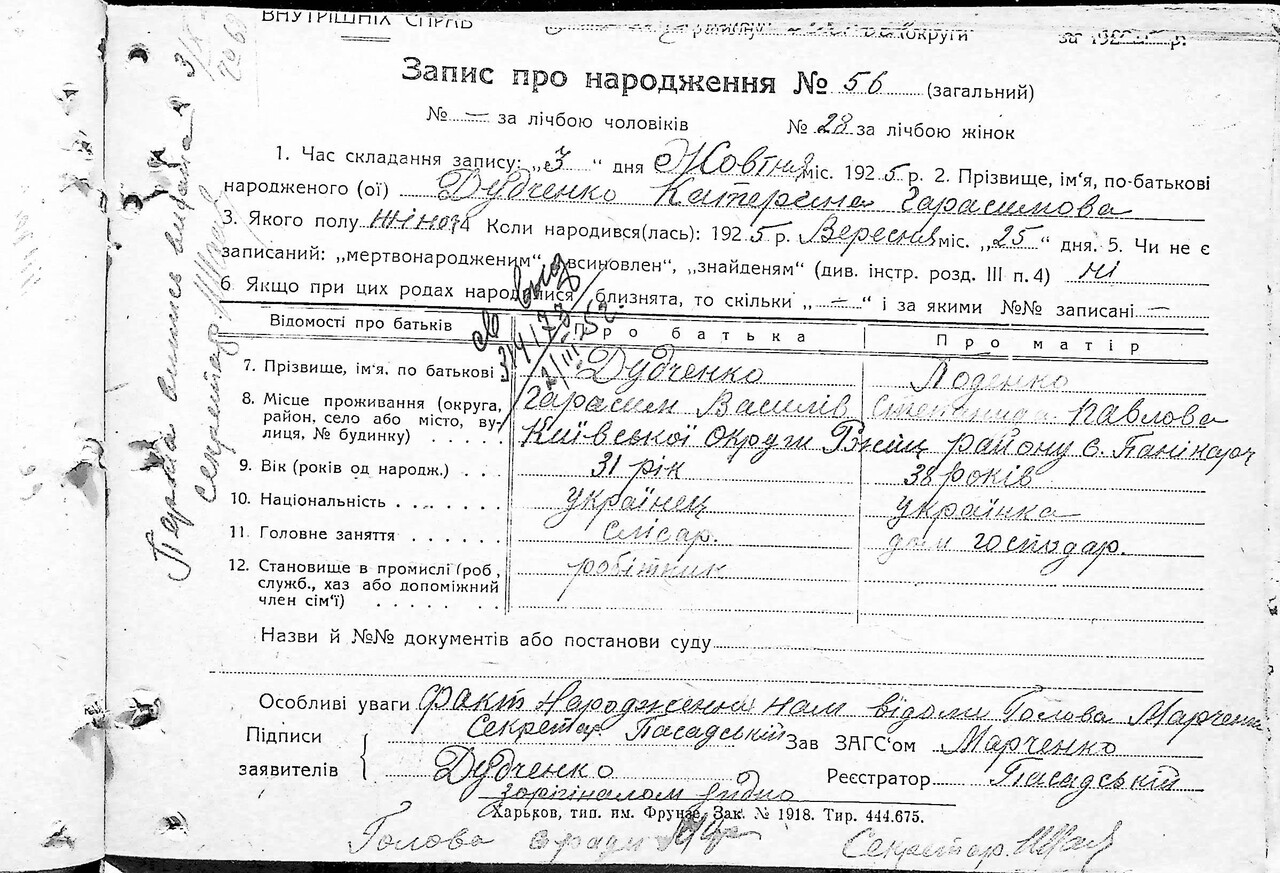 ВНУТРІШНІХ СПРАВ округи за 192 р.
Запис про народження № 56 (загальний)
№ — за лічбою чоловіків № 28 за лічбою жінок
1. Час складання запису: „3“ дня Жовтня міс. 1925 р. 2. Прізвище, ім'я, по-батькові
народженого (ої) Дудченко Катерина Гарасимова
3. Якого полу жіноч 4 Коли народився(лась): 1925 р. Вересня міс. „25“ дня. 5. Чи не є
записаний: „мертвонародженим“, „всиновлен“, „знайденям“ (див. інстр. розд. III п.4) ні
6. Якщо при цих родах народилися близнята, то скільки „—“ і за якими №№ записані —
Відомості про батьків Про батька Про матір
7. Прізвище, ім'я, по батькові Дудченко
8. Місце проживання (округа, район, село або місто, вулиця, № будинку) Гарасим Василів Степанида Павлова
Київської округи району с.
9. Вік (років од народж.) 31 рік 38 років
10. Національність українец українка
11. Головне заняття слісар. дом господар.
12. Становище в промислі (роб., служб., хаз або допоміжний член сім'ї) робітник
Назви й №№ документів або постанови суду
Особливі уваги Факт народження нам відоми Голова Марченко
Підписи Секретар Пасадський Зав ЗАГС'ом Марченко
заявителів Дудченко Реєстратор Пасадський
зорігіналом згідно
Харьков, тип. им. Фрунзе, Зак. № 1918. Тир. 444.675.
Голова с ради Секретар
Перша випись видана
секретар